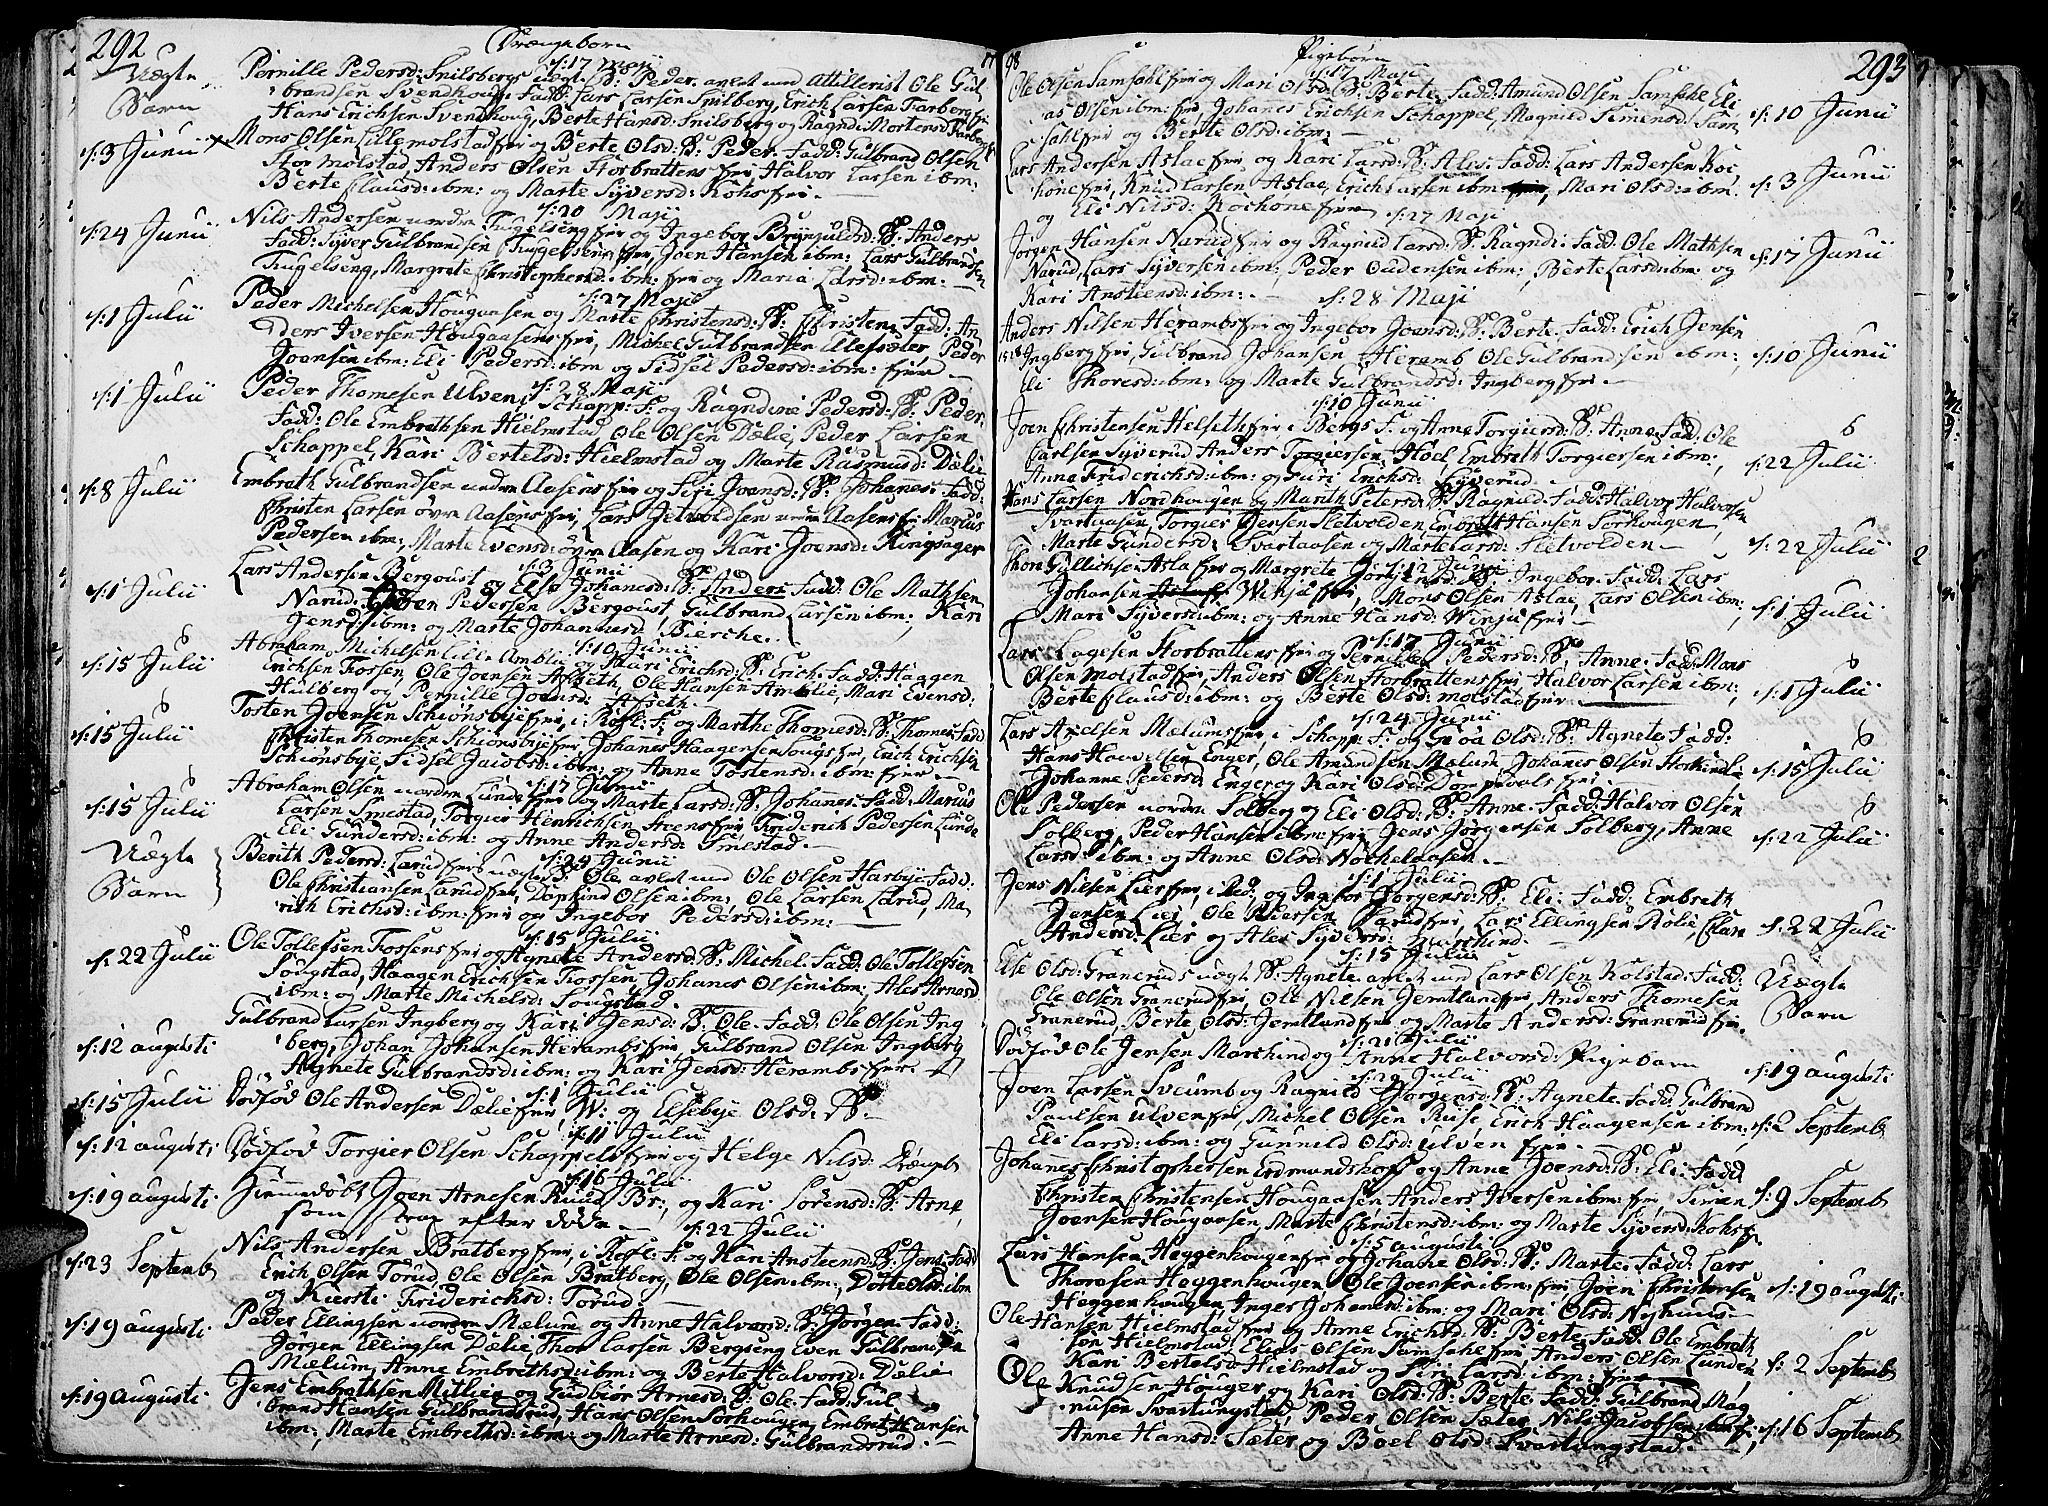 292
Drængebørn
17
Uægte
Barn
d: 17 Maji
Pernille Pedersd: Snilsbergs uægte B: Peder. avlet med Attillerist Ole Gul
brandsen Svendhoug. Fadd: Lars Larsen Spilberg, Erich Larsen
Hans Erichsen Svendhoug, Berte Hansd: Snilsberg og Ragndi Mortensd:
d: 3 Junii
Mons Olsen Lillemolstad fri og Berte Olsd: B: Peder. Fadd: Gulbrand Olsen
Stormolstad, Anders Olsen Storbrattens fri, Halvor Larsen ibm:
Berte Clausd: ibm: og Marte Syversd: Kohsfri.
d: 20 Maji
d: 24 Junii
Nils Andersen nordre Fugelseng fri og Ingebor Brynjulds: B: Anders
Fadd: Syver Gulbrandsen Fugelseng fri, Joen Hansen ibm: Lars Gulbrandsen
Fugelseng, Margrete Christophersd: ibm: fri og Maria Larsd: ibm:
d: 27 Maji
d: 1 Julii
Peder Michelsen Hougaasen og Marte Christensd: B: Christen, Fadd: An
ders Iversen Hougaasens fri, Michel Gulbrandsen Ullesæter, Peder
Joensen ibm: Eli Pedersd: ibm og Sidsel Pedersd: ibm: frie
d: 28 Maji
d: 1 Julii
Peder Thomesen Ulven, i Schapp: S: og Ragndine Pedersd: B: Peder.
Fadd: Ole Embrethsen Hielmstad, Ole Olsen Dælie, Peder Larsen
Schappel, Kari Bertelsd: Hielmstad og Marte Rasmusd: Dælie
d: 8 Julii
Embreth Gulbrandsen nedre Aasens fri og Siri Joensd: B: Johannes. Fadd:
Christen Larsen øvre Aasens fri, Lars Jetvoldsen nedre Aasens fri Marius
Pedersen ibm:, Marte Evensd: øvre Aasen og Kari Joensd: Ringsager
d: 3 Junii
d: 1 Julii
Lars Andersen Bergoust og Else Johanesd: B: Anders Fadd: Ole Mathsen
Narud, Pedersen Bergoust, Gulbrand Larsen ibm:, Kari
Jensd: ibm: og Marte Johannesd: Bierche.
d: 10 Junii
d: 15 Julii
Abraham Michelsen Lille Amblie og Kari Erichsd: B: Erich. Fadd: Haagen
Erichsen Fossen, Ole Joensen Ole Hansen Amblie, Mari Evensd:
Hulberg og Pernille Joensd:
d: 15 Julii
Tosten Joensen Schiønsbye fri, i S: og Marthe Thomesd: B: Thomes. Fadd
Christen Thomesen Schiønsbye fri, Johanes Haagensen fri, Erich Erichsen
Schiønsbye, Sidsel Jacobsd: ibm: og Anne Tostensd: ibm: frie
d: 17 Junii
d: 15 Julii
Abraham Olsen nordre Lunde fri og Marte Larsd: B: Johanes. Fadd: Marius
Larsen Smestad, Torgier Henrichsen Steens fri, Friderich Pedersen Lunde
Eli Gundersd: ibm: og Anne Andersd: Smestad.
d: 24 Junii
Uægte
Barn
Berith Pedersd: Larud fries uægte B: Ole avlet med Ole Olsen Harbye. Fadd:
Ole Christiansen Larud fri, Olsen ibm:, Ole Larsen Larud, Ma
rith Erichsd: ibm: fri og Ingebor Pedersd: ibm:
d: 15 Julii
d: 22 Julii
Ole Tollefsen Fossens fri og Agnete Andersd: B: Michel. Fadd: Ole Tollefsen
Sougstad, Haagen Erichsen Fossen, Johanes Olsen ibm:, Ales Arnesd
ibm: og Marte Michelsd: Sougstad.
d: 12 augusti
Gulbrand Larsen Ingberg og Kari Jensd: B: Ole. Fadd: Ole Olsen Ing
berg, Johan Johansen Herambs fri, Gulbrand Olsen Ingberg,
Agnete Gulbrandsd: ibm: og Kari Jensd: Herambs frie.
d: 1 Julii
d: 15 Julii
Dødfød Ole Andersen Dælie fri W: og Elsebye Olsd: B:
d: 11 Julii
d: 12 augusti
Dødfød Torgier Olsen Schappels fri og Helge Nilsd: Drængeb
d: 16 Julii
d: 19 augusti
Hiemmedøbt Joen Arnesen Ruud Br:, og Kari Sørensd: B: Arne,
som strax efter døde.
d: 22 Julii
d: 23 Septemb
Nils Andersen Bratberg fri, i S: og Kari Ansteensd: B: Jens. Fadd
Erich Olsen Torud, Ole Olsen Bratberg, Ole Olsen ibm:, Dorte Olsd: ibm
og Kiersti Friderichsd: Torud
d: 19 augusti
Peder Ellingsen nordre Mælum og Anne Halvorsd: B: Jørgen. Fadd:
Jørgen Ellingsen Dælie, Thor Larsen Bergseng, Even Gulbrandsen
Mælum, Anne Embrethsd: ibm: og Berte Halvorsd: Dælie
d: 19 augusti
Jens Embrethsen Mitlie og Gudbiør Arnesd: B: Ole. Fadd: Gul
brand Hansen Gulbrandsrud, Hans Olsen Sørhougen, Embret Hansen
ibm:, Marte Embrethsd: ibm: og Marte Arnesd: Gulbrandsrud.
98
Pigebørn
293
d: 17 Maji
Ole Olsen Samsahl fri og Mari Olsd: B: Berte. Fadd: Amund Olsen Samsahl Eli
as Olsen ibm: fri, Johanes Erichsen Schappel, Magnild Simensd: Sam
sahl fri og Berte Olsd: ibm:
d: 10 Junii
Lars Andersen Aslae fri og Kari Larsd: B: Ales. Fadd: Lars Andersen Koc
hone fri, Knud Larsen Aslae, Erich Larsen ibm:, Mari Olsd: ibm:
og Eli Nilsd: Kochone frie
d: 3 Junii
d: 27 Maji
Jørgen Hansen Narud fri og Ragnild Larsd: B: Ragndi. Fadd: Ole Mathsen
Narud, Lars Syversen ibm:, Peder Oudensen ibm:, Berte Larsd: ibm: og
Kari Ansteensd: ibm:
d: 17 Junii
d: 28 Maji
Anders Nilsen Herambs fri og Ingebor Joensd: B: Berte. Fadd: Erich Jensen
Ingberg fri, Gulbrand Johansen Heramb, Ole Gulbrandsen ibm:,
Eli Thoresd: ibm: og Marte Gulbrandsd: Ingberg fri.
d: 10 Junii
d: 10 Junii
Joen Christensen Helseth fri i Bergs S: og Anne Torgiersd: B: Anne. Fad: Ole
Carlsen Syverud, Anders Torgiersen Hoel, Embreth Torgiersen ibm:,
Anne Friderichsd: ibm: og Guri Erichsd: Syverud.
d: 22 Julii
Hans Larsen Nordhougen og Marith Petersd: B: Ragnild. Fadd: Halvor Halvorsen
Svartaasen, Torgier Jensen Sletvolden, Embrett Hansen Sørhougen,
Marte Gundersd: Svartaasen og Marte Larsd: Sletvolden
d: 22 Julii
d: 12 Junii
Thore Gullichsen Asla fri og Margrete Jørgensd: B: Ingebor. Fadd: Lars
Johansen Winju fri, Mons Olsen Aslae, Lars Olsen ibm:,
Mari Syversd: ibm: og Anne Hansd: Winju fri.
d: 1 Julii
d: 17 Junii
Lars Lagesen Storbrattens fri og Pernille Pedersd: B: Anne. Fadd: Mons
Olsen Molstad fri, Anders Olsen Storbrattens fri, Halvor Larsen ibm:,
Berte Clausd: ibm: og Berte Olsd: Molstad frie.
d: 1 Julii
d: 24 Junii
Lars Axelsen Mælums fri, i Schapp: S: og Groa Olsd: B: Agnete. Fadd:
Hans Hovelsen Enger, Ole Amundsen Mælum, Johanes Olsen
Johanne Pedersd Enger og Kari Olsd: fri
d: 15 Julii
Ole Pedersen nordre Solberg og Eli Olsd: B: Anne. Fadd: Halvor Olsen
Solberg, Peder Hansen ibm: fri, Jens Jørgensen Solberg, Anne
Larsd: ibm: og Anne Olsd: Nøchelaasen.
d: 22 Julii
d: 1 Julii
Jens Nilsen Lier fri, i Red:, og Ingebor Jørgensd: B: Eli. Fadd: Embreth
Jensen Lier, Ole Larud fri, Lars Ellingsen Rølie, Clare
Andersd: Lier og Ales Syversd: Marchind.
d: 22 Julii
d: 15 Julii
Else Olsd: Granerud's uægt: B: Agnete. avlet med Lars Olsen Kolstad. Fadd:
Ole Olsen Granerud fri, Ole Nilsen Jemtland fri, Anders Thomesen
Granerud, Berte Olsd: Jemtlund fri og Marte Andersd: Granerud fri.
Uægte
Barn
d: 21 Julii
Dødfød Ole Jensen Marchind og Anne Halvorsd: Pigebarn
d: 19 augusti
d: 29 Julii
Joen Larsen Sveumb og Ragnild Jørgensd: B: Agnete. Fadd: Gulbrand
Paulsen Ulven fri, Michel Olsen Ruse, Erich Haagensen ibm:,
Eli Larsd: ibm: og Gunnild Olsd: Ulven frie
d: 2 Septemb
Johannes Christophersen Erdmundshoff og Anne Joensd: B: Eli. Fadd
Christen Christensen Hougaasen, Anders Iversen ibm: fri, Simen
Joensen Hougaasen, Marte Christensd: ibm: og Marte Syversd: Kohsfr.
d: 9 Septemb
d: 5 augusti
Lars Hansen Heggenhougen fri og Johane Olsd: B: Marte. Fadd: Lars
Thoresen Heggenhougen, Ole Joensen ibm: fri, Joen Christensen
Heggenhougen, Inger Johanesd: ibm: og Mari Olsd: Nyhuus
d: 19 augusti
Ole Hansen Hielmstad fri og Anne Erichsd: B: Berte. Fadd: Ole Embreth
sen Hielmstad, Elias Olsen Samsahl fri, Anders Olsen Lunden
Kari Bertelsd: Hielmstad og Siri Larsd: ibm: frie
d: 2 Septemb
Ole Knudsen Houger og Kari Olsd: B: Berte. Fadd: Gulbrand Mag
nusen Svartungstad, Peder Olsen Sæter, Nils Jacobsen
Anne Hansd: Sæter og Boel Olsd: Svartungstad.
d: 16 Septemb